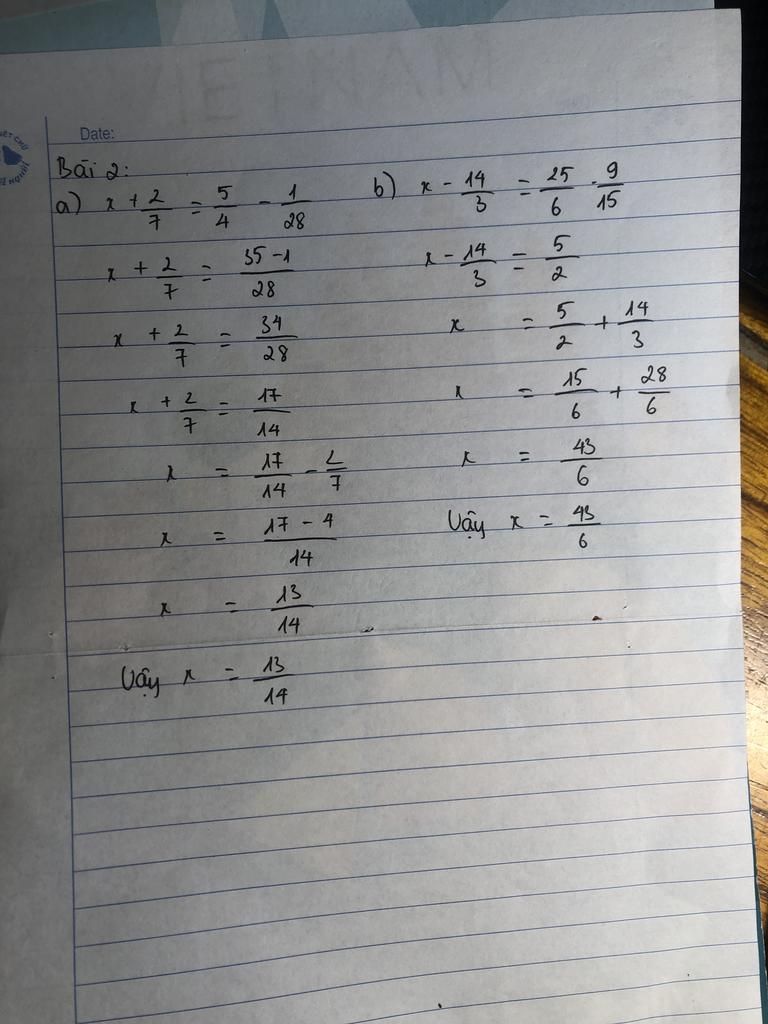 VIETNAM
Date:
Bài 2:
a) x + 2/7 = 5/4 - 1/28
x + 2/7 = (35 - 1)/28
x + 2/7 = 34/28
x + 2/7 = 17/14
x = 17/14 - 2/7
x = (17 - 4)/14
x = 13/14
Vậy x = 13/14
b) x - 14/3 = 25/6 . 9/15
x - 14/3 = 5/2
x = 5/2 + 14/3
x = 15/6 + 28/6
x = 43/6
Vậy x = 43/6